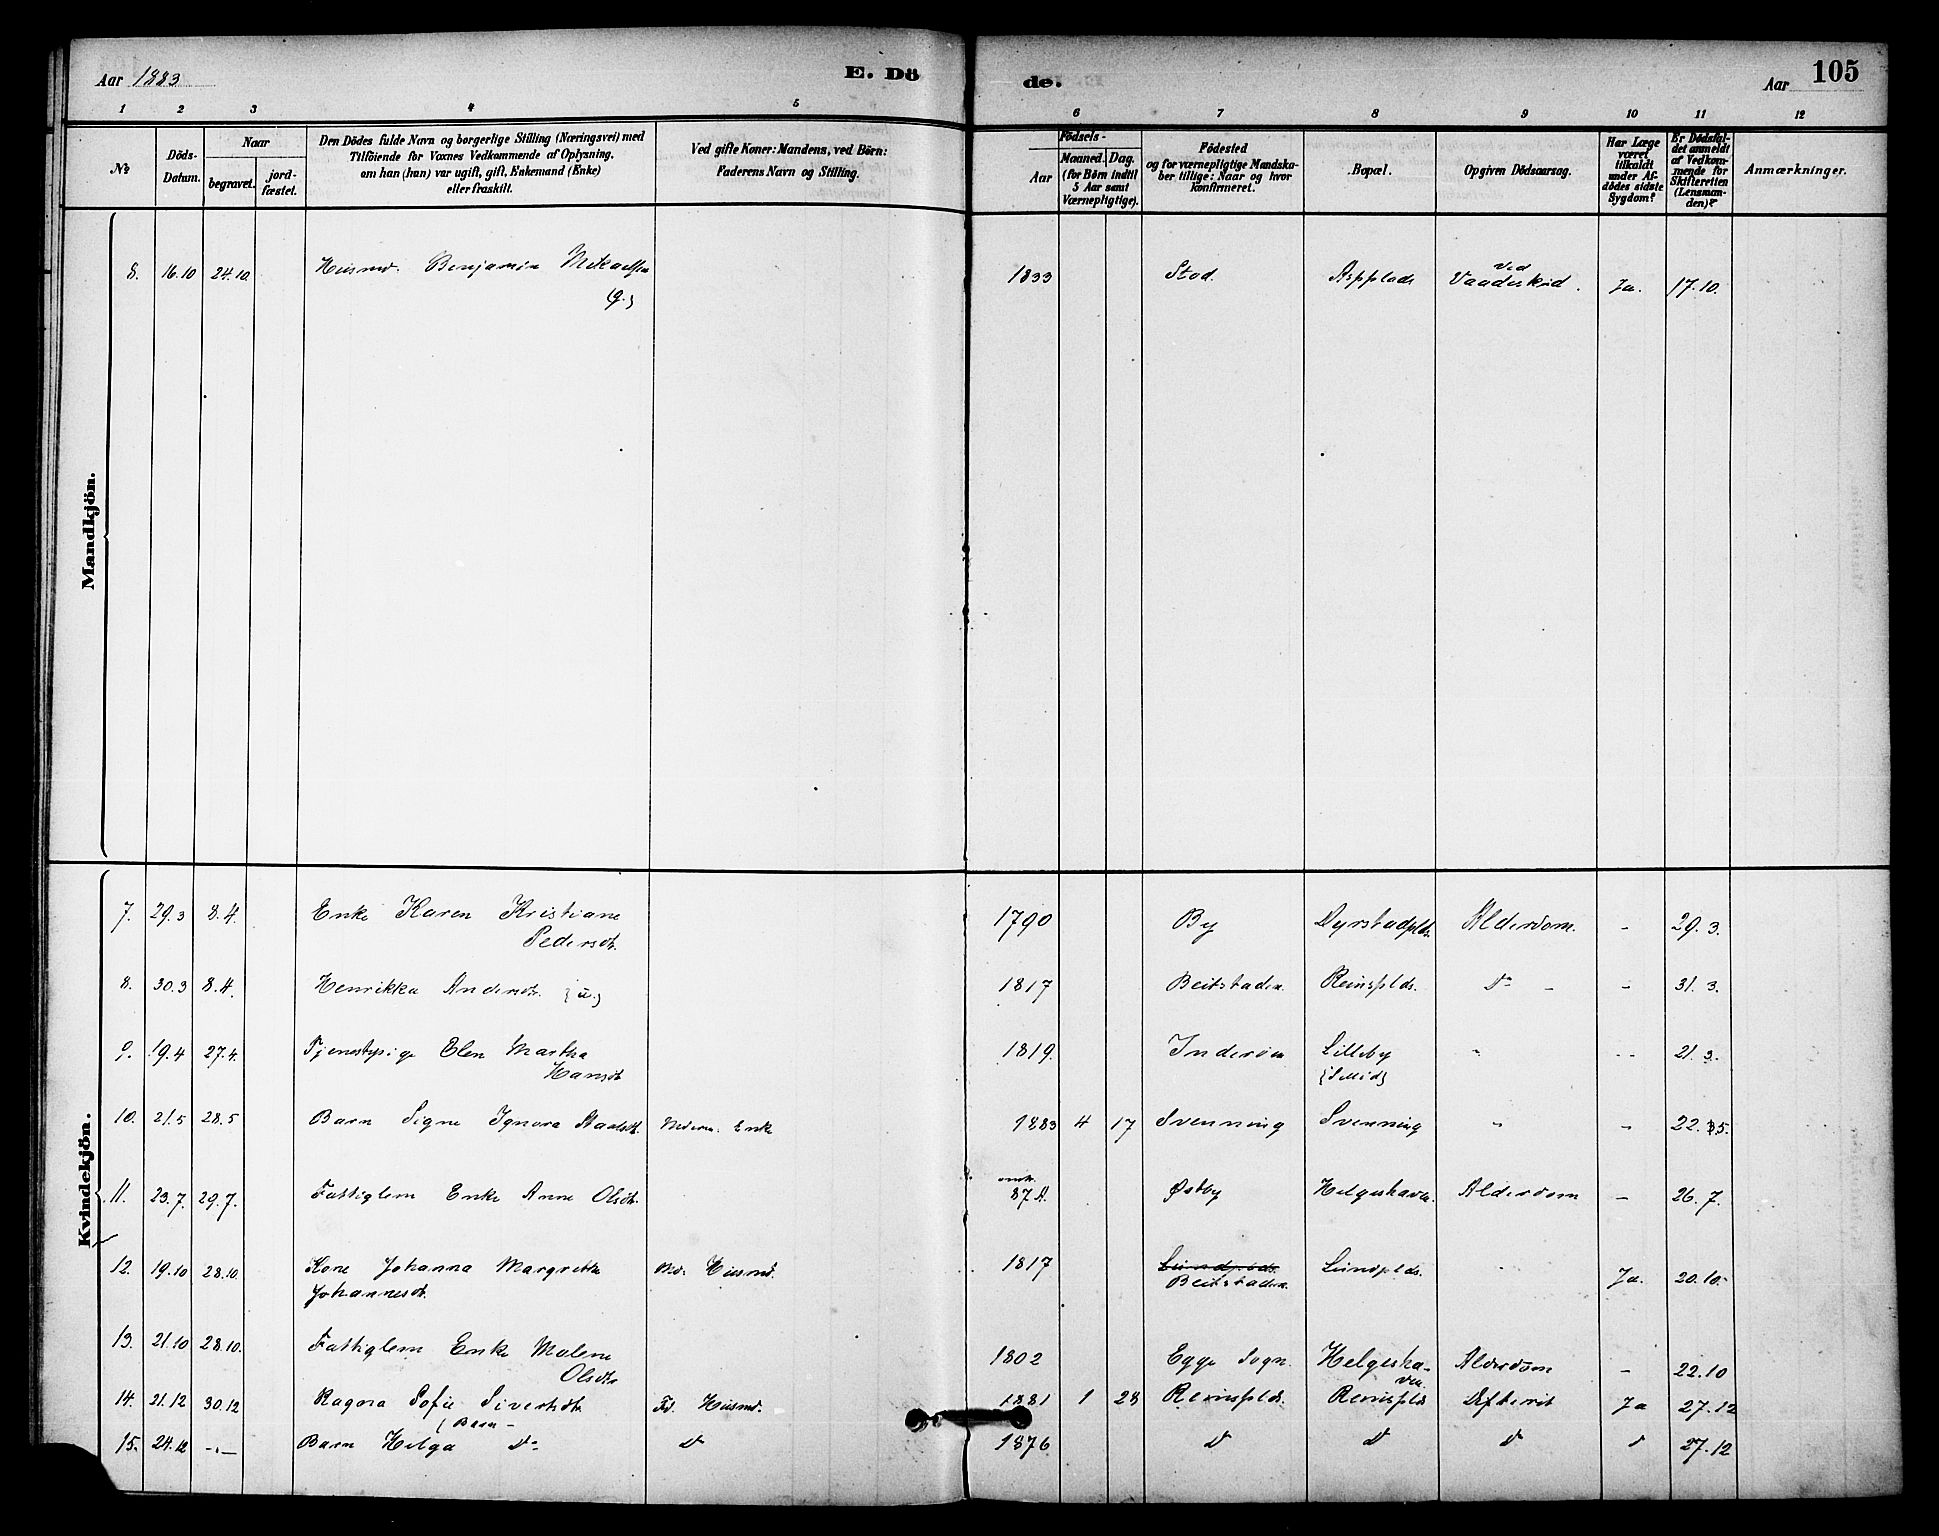 Aar 1883
E. Dö
de.
Aar
105
1 2 3 4 5 6 7 8 9 10 11 12
№
Döds-
Datum.
Naar
begravet.
jord-
fæstet.
Den Dödes fulde Navn og borgerlige Stilling (Næringsvei) med
Tilföiende for Voxnes Vedkommende af Oplysning.
om han (hun) var ugift, gift, Enkemand (Enke)
eller fraskilt.
Ved gifte Koner: Mandens, ved Börn:
Faderens Navn og Stilling.
Födsels-
Aar
Maaned. Dag.
(for Börn indtil
5 Aar samt
Værnepligtige).
Födested
og for værnepligtige Mandska-
ber tillige: Naar og hvor
konfirmeret.
Bopæl.
Opgiven Dödsaarsag.
Har Læge
været
tilkaldt
under Af-
dödes sidste
Sygdom?
Er Dödsfal-
det anmeldt
af Vedkom-
mende for
Skifteretten
(Lensman-
den)?
Anmærkninger.
Mandkjön.
8. 16.10 24.10. Husmd. Benjamin Mikaelsen 1833 Stod. Aspplads Vaadeskud. Ja. 17.10.
(g.) ved
Kvindekjön.
7. 29.3 8.4. Enke Karen Kristiane 1790 By Dyrstadplds. Alderdom. - 29.3.
Pedersdt.
8. 30.3 8.4. Henrikka Andersdt. (u.) 1817 Beitstaden. Reinsplds. Do - - 31.3.
9. 19.4 27.4. Tjenestepige Elen Martha 1819. Inderøen Lilleby - - - 21.3.
Hansdt
10. 21.5 28.5 Barn Signe Ignora 1883 4 17 Svenning Svenning - - 22.5.
Enke
11. 23.7. 29.7. Fattiglem Enke Anne Olsdt. omtr. 87 A. Østby Helgeshaven. Alderdom - 26.7.
12. 19.10 28.10. Kone Johanna Margrethe Md. Husmd. 1817 Lundplds. Lundplds. Ja. 20.10.
Johannesdt. Beitstaden.
13. 21.10 28.10. Fattiglem Enke Malene 1802 Egge Sogn. Helgesha- Alderdom - 22.10
Olsdtr ven.
14. 21.12 30.12 Ragna Sofie Sivertsdtr Fd. Husmd. 1881 1 28 Reinsplds. Reinsplds Difterit Ja 27.12
(Barn-
15. 24.12 -"- Barn Helga Do Do 1876 Do Do Do Do 27.12